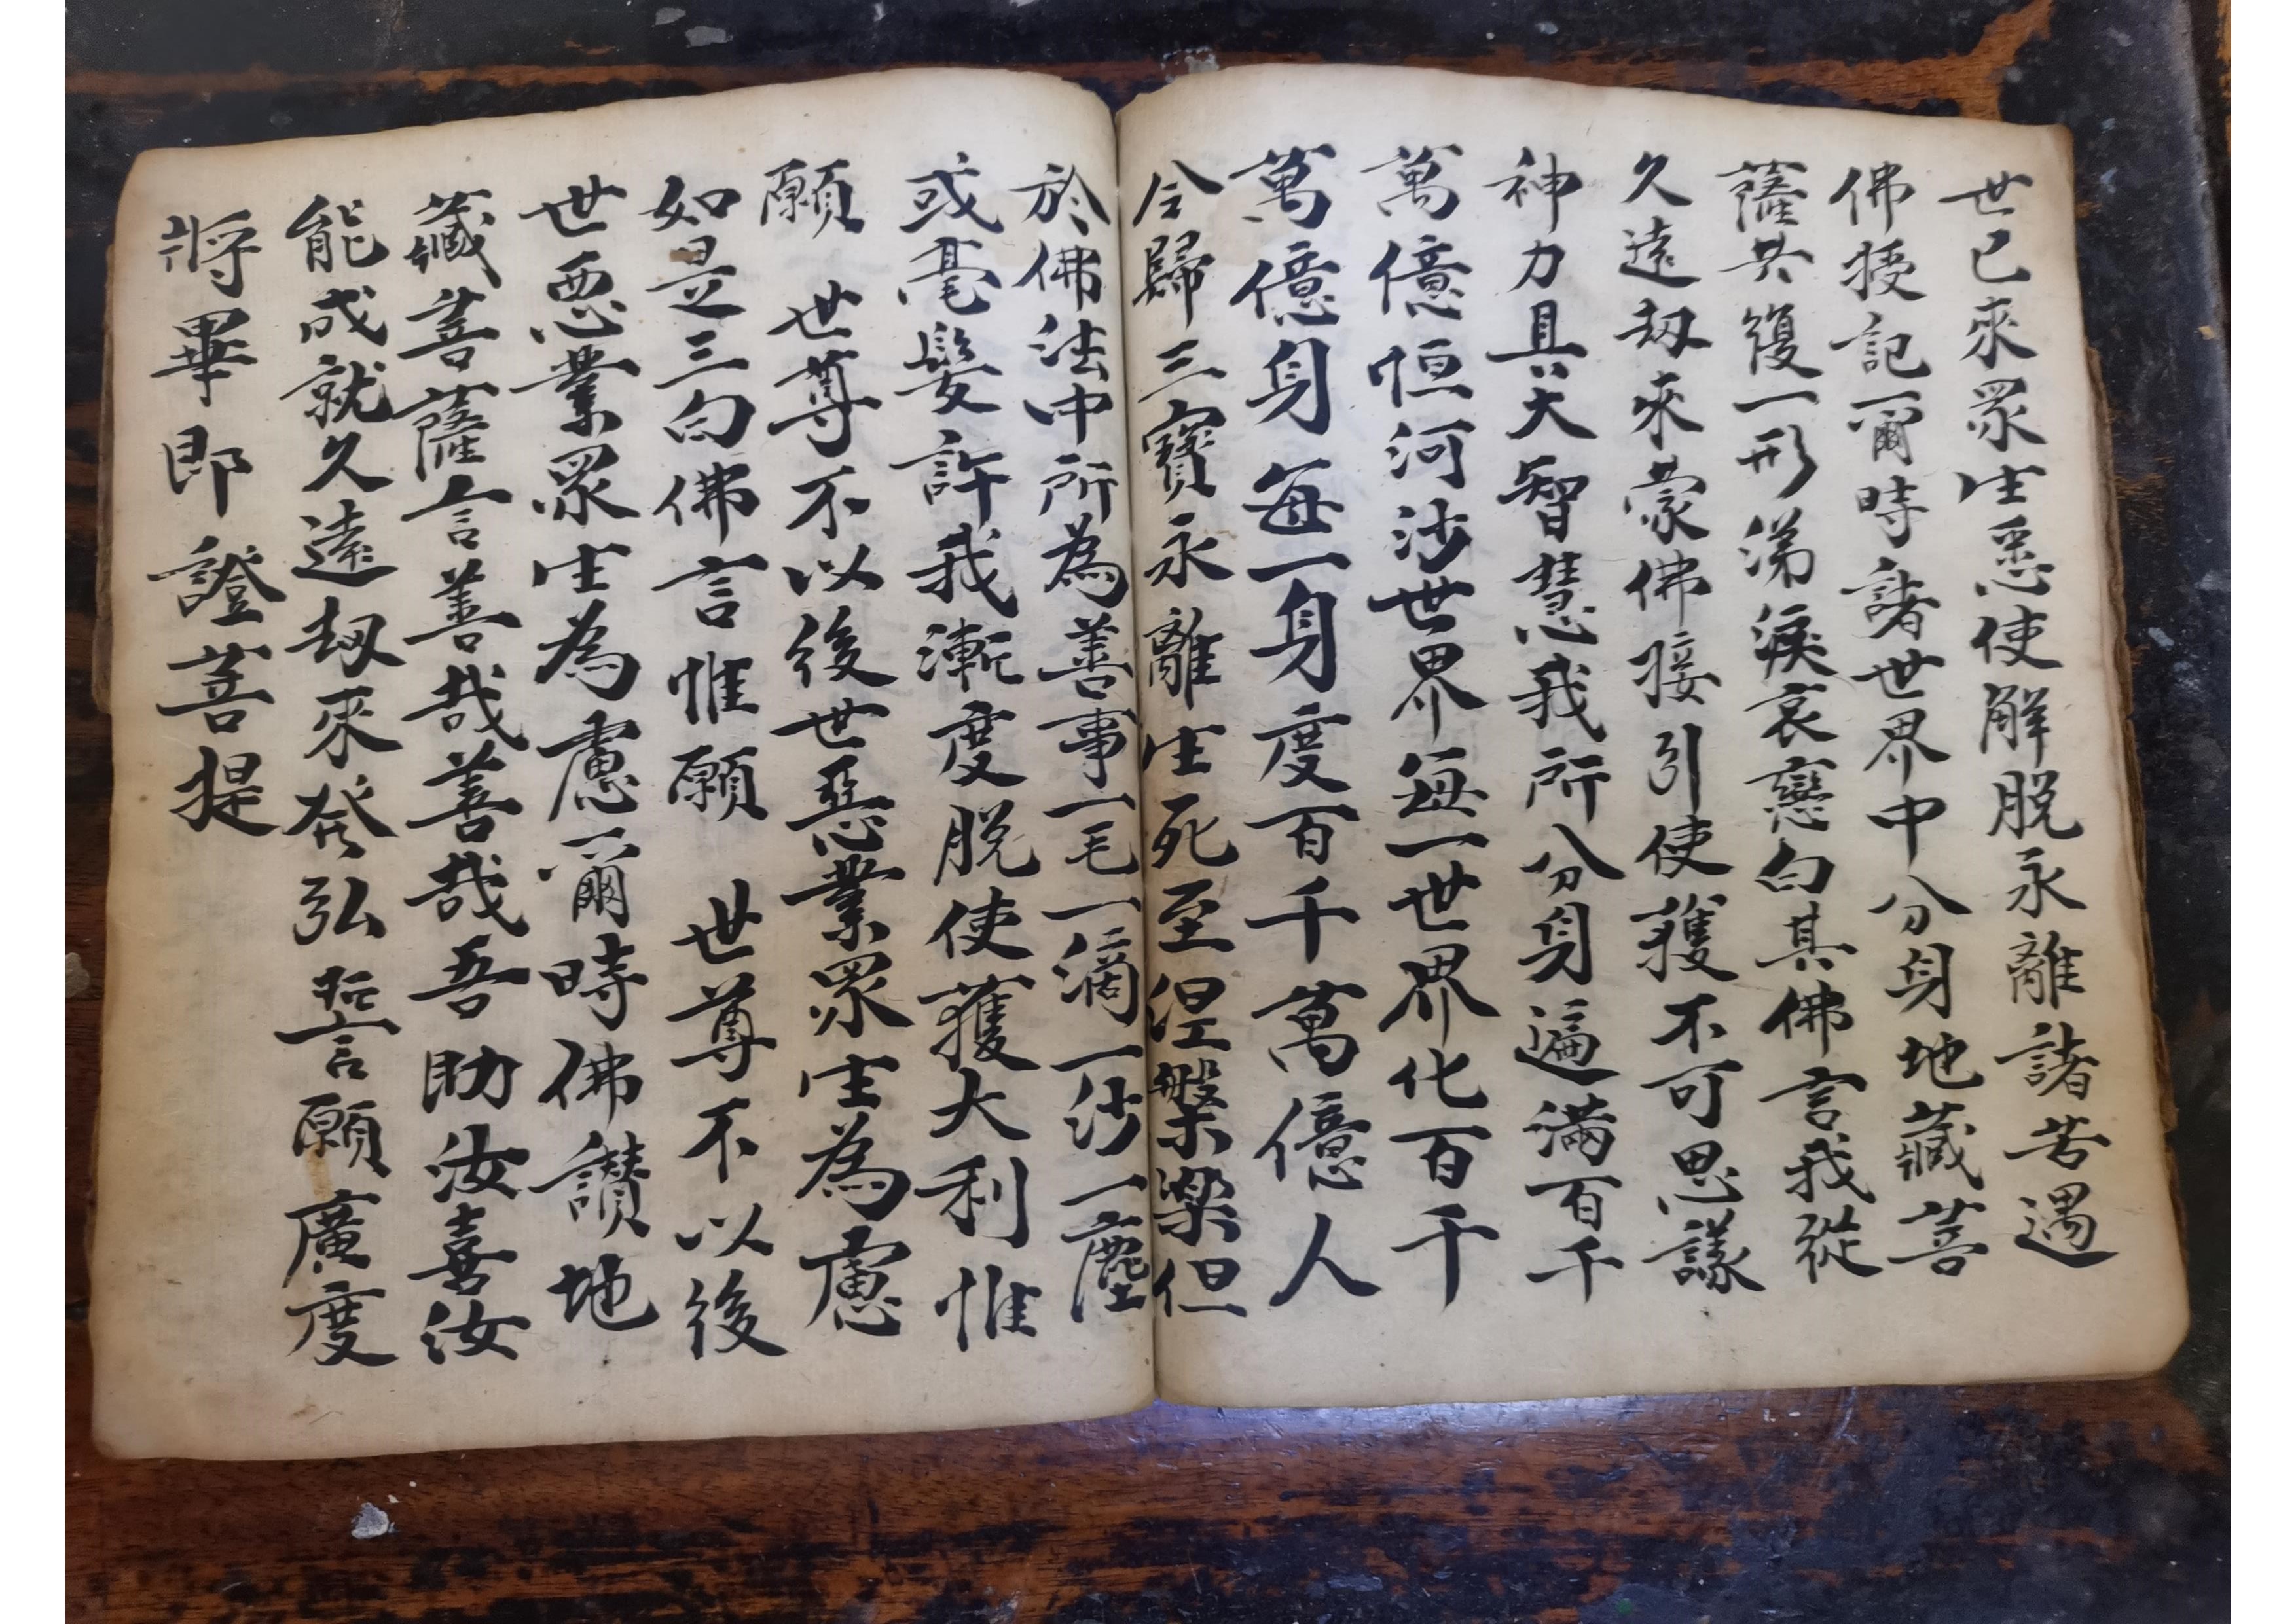 世已來眾生悉使解脫永離諸苦遇
佛授記爾時諸世界中分身地藏菩
薩共復一形涕淚哀戀白其佛言我從
久遠刼來蒙佛接引使獲不可思議
神力具大智慧我所分身遍滿百千
萬億恒河沙世界每一世界化百千
萬億身每一身度百千萬億人
令歸三寶永離生死至涅槃樂但
於佛法中所為善事一毛一滴一沙一塵
或毫髮許我漸度脫使獲大利惟
願 世尊不以後世惡業眾生為慮
如是三白佛言惟願 世尊不以後
世悪業眾生為慮爾時佛讚地
藏菩薩言善哉善哉吾助汝喜汝
能成就久遠刼來發弘誓言願廣度
將畢即證菩提